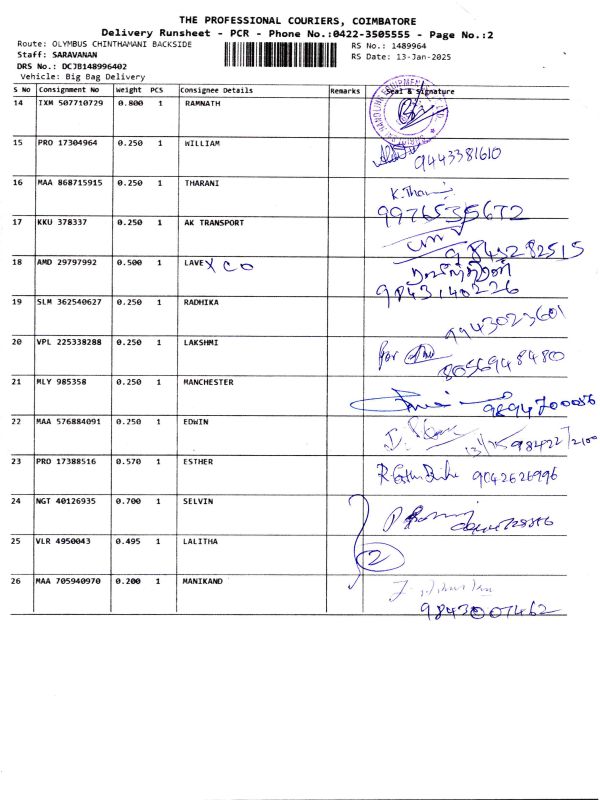 THE PROFESSIONAL COURIERS, COIMBATORE
Delivery Runsheet - PCR - Phone No.:0422-3505555 - Page No.:2
Route: OLYMBUS CHINTHAMANI BACKSIDE RS No.: 1489964
Staff: SARAVANAN RS Date: 13-Jan-2025
DRS No.: DCJB148996402
Vehicle: Big Bag Delivery
S No Consignment No Weight PCS Consignee Details Remarks Seal & Signature
14 IXM 507710729 0.800 1 RAMNATH
15 PRO 17304964 0.250 1 WILLIAM 9443381610
16 MAA 868715915 0.250 1 THARANI
17 KKU 378337 0.250 1 AK TRANSPORT 9841282515
18 AMD 29797992 0.500 1 LAVE X C O
9843140226
19 SLM 362540627 0.250 1 RADHIKA 9943023601
20 VPL 225338288 0.250 1 LAKSHMI for 8056948480
21 MLY 985358 0.250 1 MANCHESTER 9894700056
22 MAA 576884091 0.250 1 EDWIN
23 PRO 17388516 0.570 1 ESTHER 9042626996
24 NGT 40126935 0.700 1 SELVIN
25 VLR 4950043 0.495 1 LALITHA 2
26 MAA 705940970 0.200 1 MANIKAND
9843007462